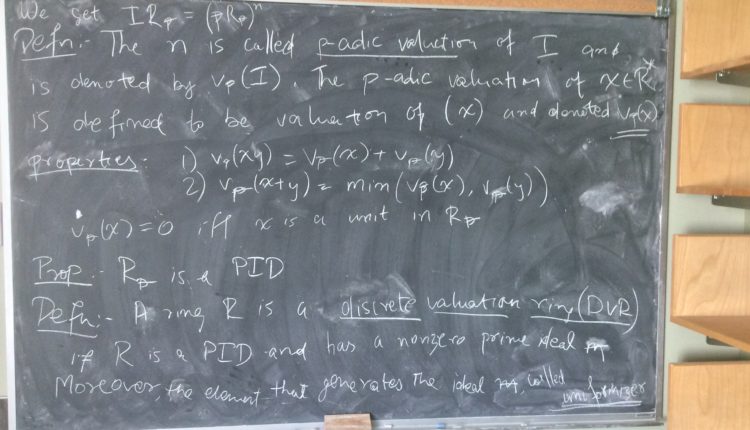 We get IR_p = (pR_p)^n
Defn:- The n is called p-adic valuation of I and
is denoted by v_p(I). The p-adic valuation of x∈R^*
is defined to be valuation of (x) and denoted v_p(x)
properties:- 1) v_p(xy) = v_p(x) + v_p(y)
2) v_p(x+y) = min(v_p(x), v_p(y))
v_p(x) = 0 iff x is a unit in R_p
Prop:- R_p is a PID
Defn:- A ring R is a discrete valuation ring (DVR)
if R is a PID and has a nonzero prime ideal m
Moreover, the element that generates the ideal m, called uniformizer